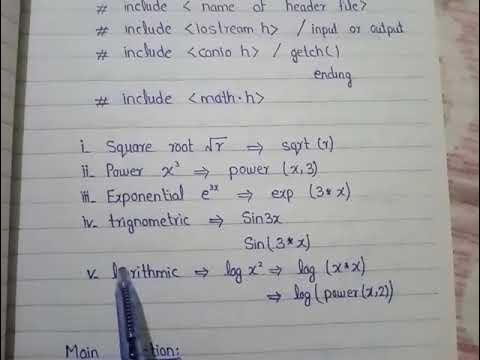 # include < name of header file>
# include <iostream h> / input or output
# include <conio h> / getch()
ending
# include <math.h>
i. Square root √r ⇒ sqrt (r)
ii. Power x³ ⇒ power (x,3)
iii. Exponential e³ˣ ⇒ exp (3*x)
iv. trignometric ⇒ Sin3x
Sin(3*x)
v. rithmic ⇒ log x² ⇒ log (x*x)
⇒ log(power(x,2))
Main tion: